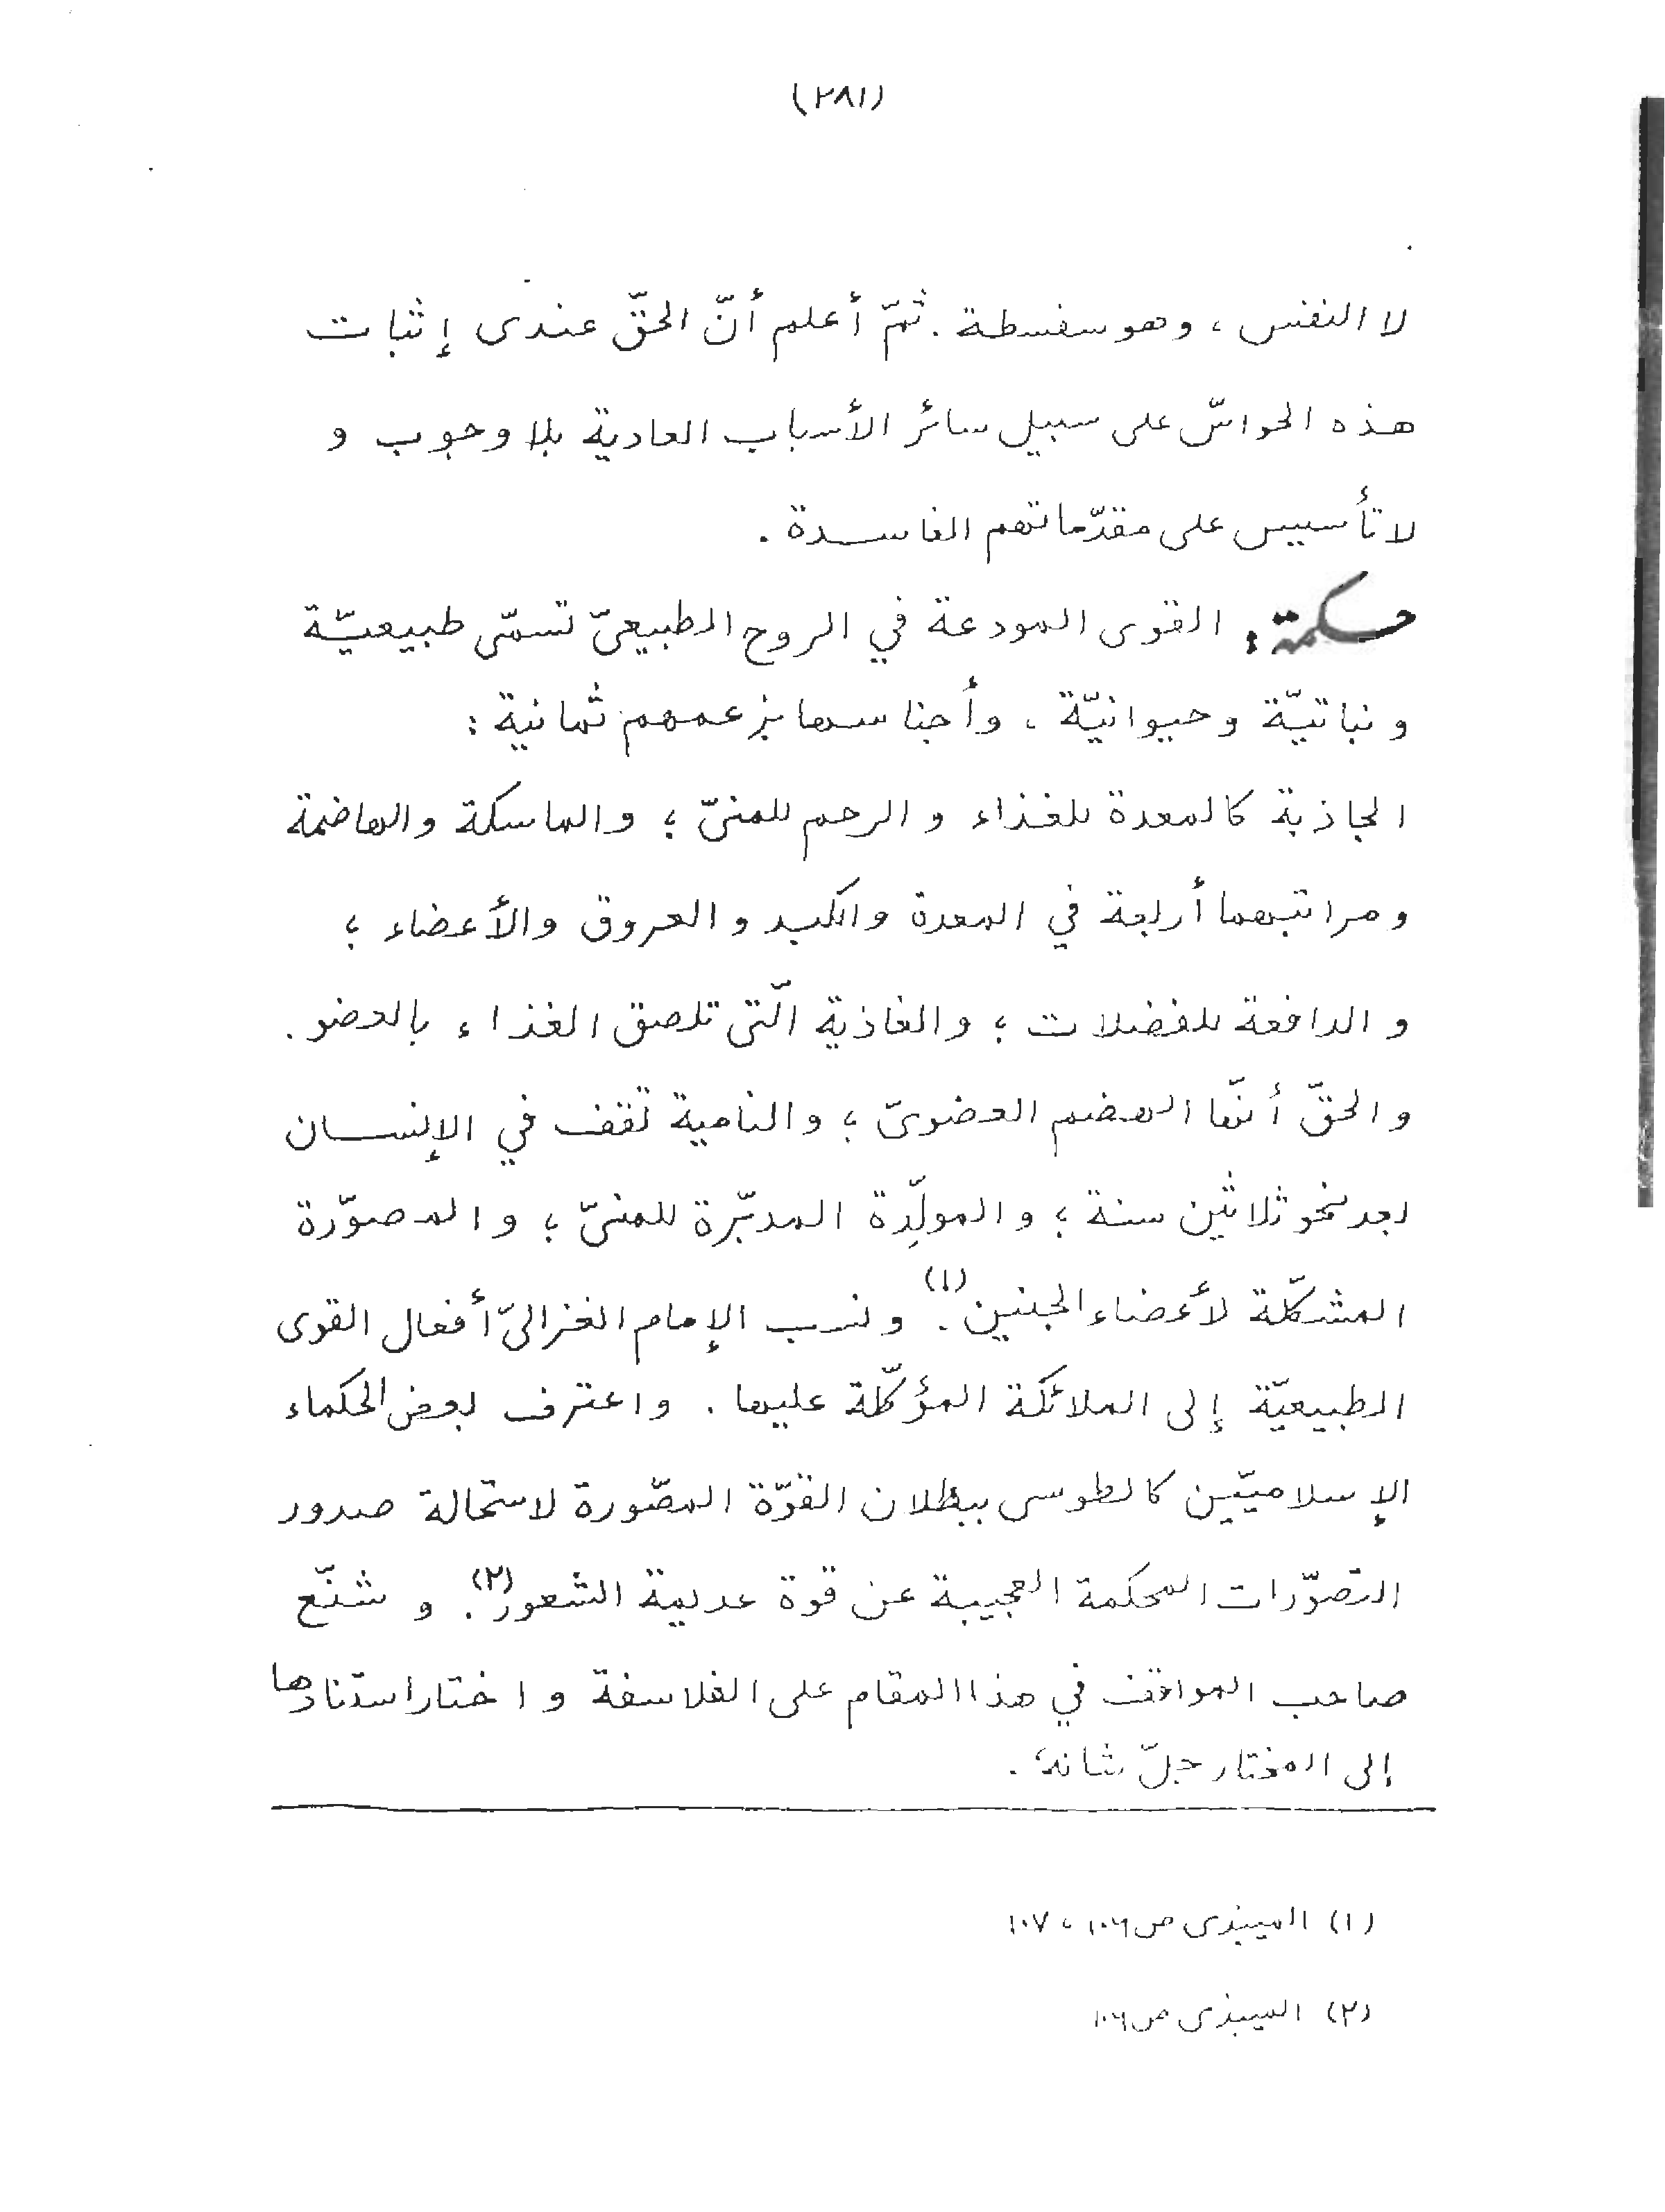 (٢٨١)
لا النفس ، وهو سفسطة . ثمّ أعلم أنّ الحقّ عندى إثبات
هذه الحواسّ على سبيل سائر الأسباب العادية بلا وجوب و
لا تأسيس على مقدّماتهم الفاسدة .
حكمة : القوى المودعة في الروح الطبيعىّ تسمّى طبيعيّة
و نباتيّة وحيوانيّة . وأجناسها بزعمهم ثمانية :
الجاذبة كالمعدة للغذاء و الرحم للمنىّ ؛ والماسكة والهاضمة
و مراتبهما أربعة في المعدة والكبد و العروق والأعضاء ؛
و الدافعة للفضلات ؛ و الغاذية الّتى تلصق الغذاء بالعضو .
و الحقّ أنّها الهضم العضوىّ ؛ والنامية تقف في الإنسان
بعد نحو ثلاثين سنة ؛ و المولّدة المدبّرة للمنىّ ؛ و المصوّرة
المشكّلة لأعضاء الجنين(١) . ونسب الإمام الغزالىّ أفعال القوى
الطبيعيّة إلى الملائكة المؤكّلة عليها . واعترف بعض الحكماء
الإسلاميّين كالطوسى ببطلان القوّة المصّورة لاستحالة صدور
التصوّرات المحكمة العجيبة عن قوة عديمة الشعور(٢) . و شنّع
صاحب المواقف في هذا المقام على الفلاسفة و اختار استنادها
إلى المختار جلّ شانه .
(١) الميبذى ص ١٠٦ ، ١٠٧
(٢) الميبذى ص ١٠٦